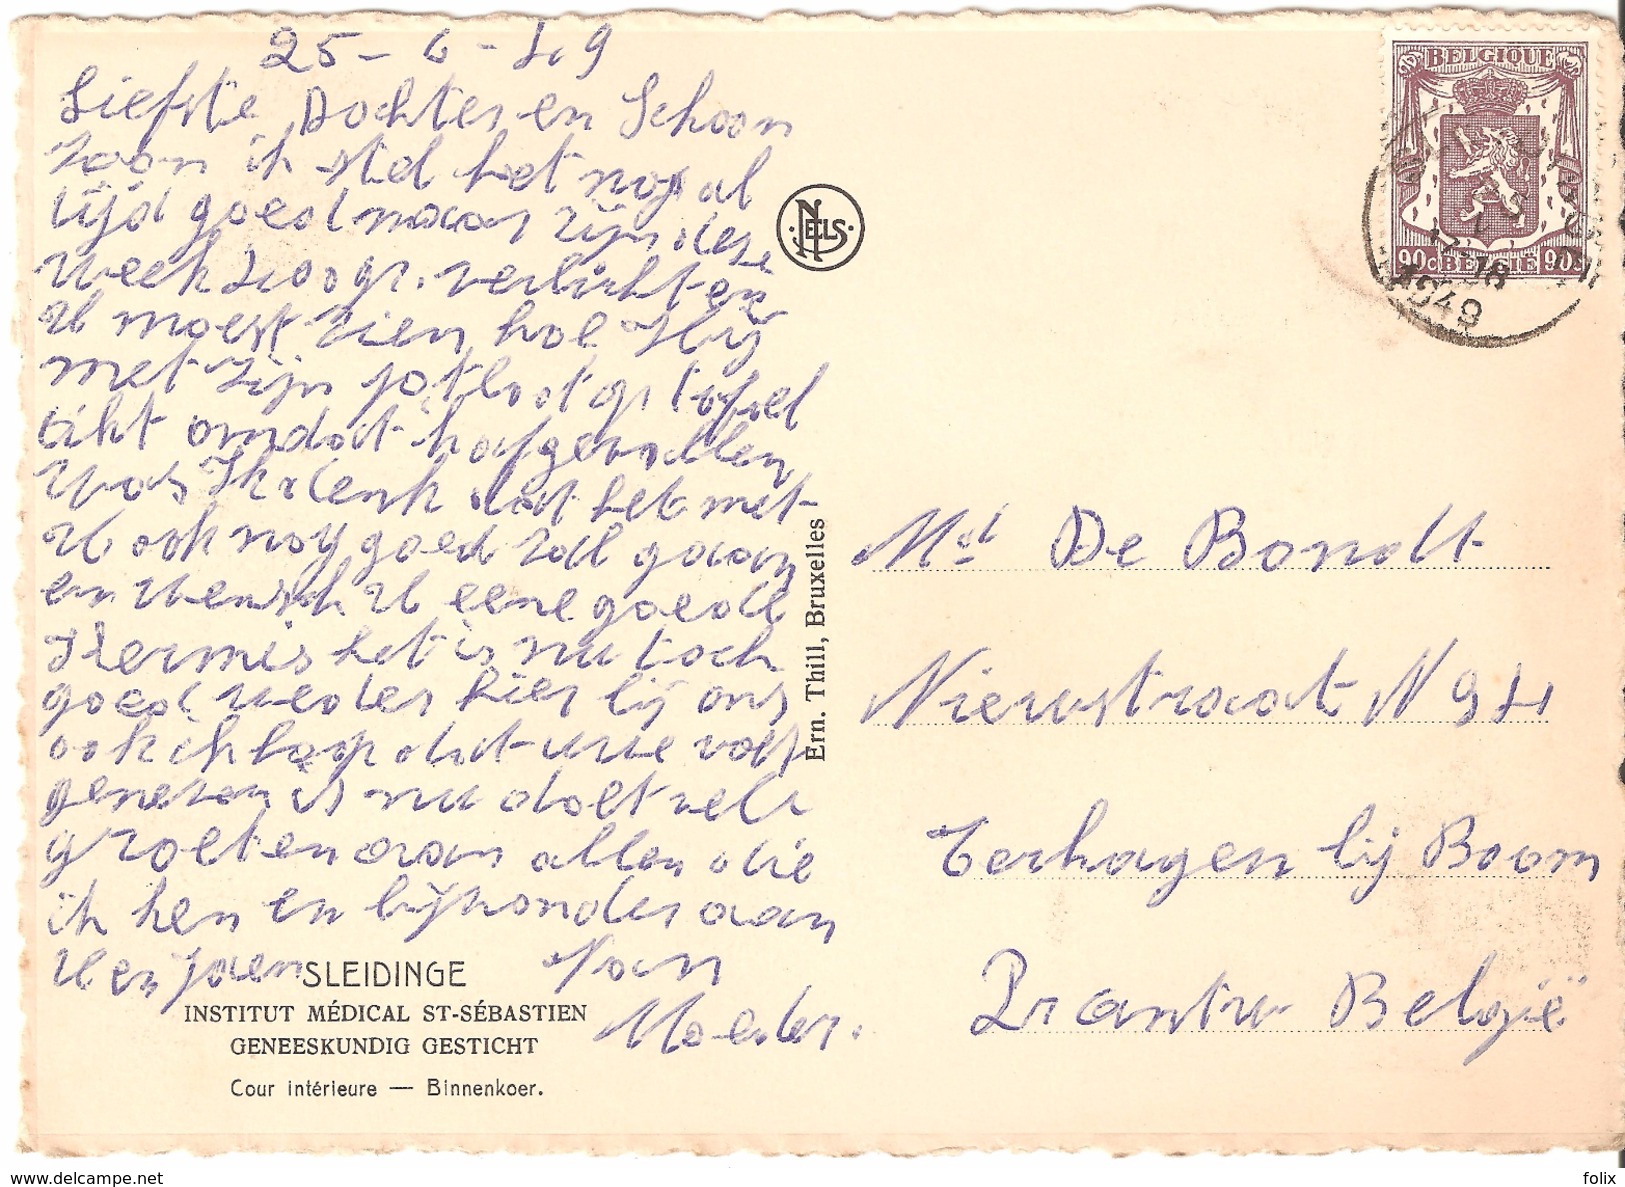 25-6-49
Liefste Dochter en Schoon
zoon ik stel het nog al
tijd goed maar zijn deze
week hoogs. verlicht en
U moest zien hoe Hij
met zijn potloot op tafel
tikt omdat hafgevallen
was Ik denk dat het met
U ook nog goed zal gaan
en wensch U eene goede
Kermis het is nu toch
goed weder hier bij ons
ook ik hoop dat uwe voet
genezen is nu doet vele
groeten aan allen die
ik ken en bijzonder aan
U en Jaen Van
Moeder.
SLEIDINGE
INSTITUT MÉDICAL ST-SÉBASTIEN
GENEESKUNDIG GESTICHT
Cour intérieure — Binnenkoer.
Ern. Thill, Bruxelles
NELS
BELGIQUE
90c BELGIË 90c
17-18
1949
Md De Bondt
Nieuwstraat N 94
Terhagen bij Boom
Pr antw België
www.delcampe.net
felix